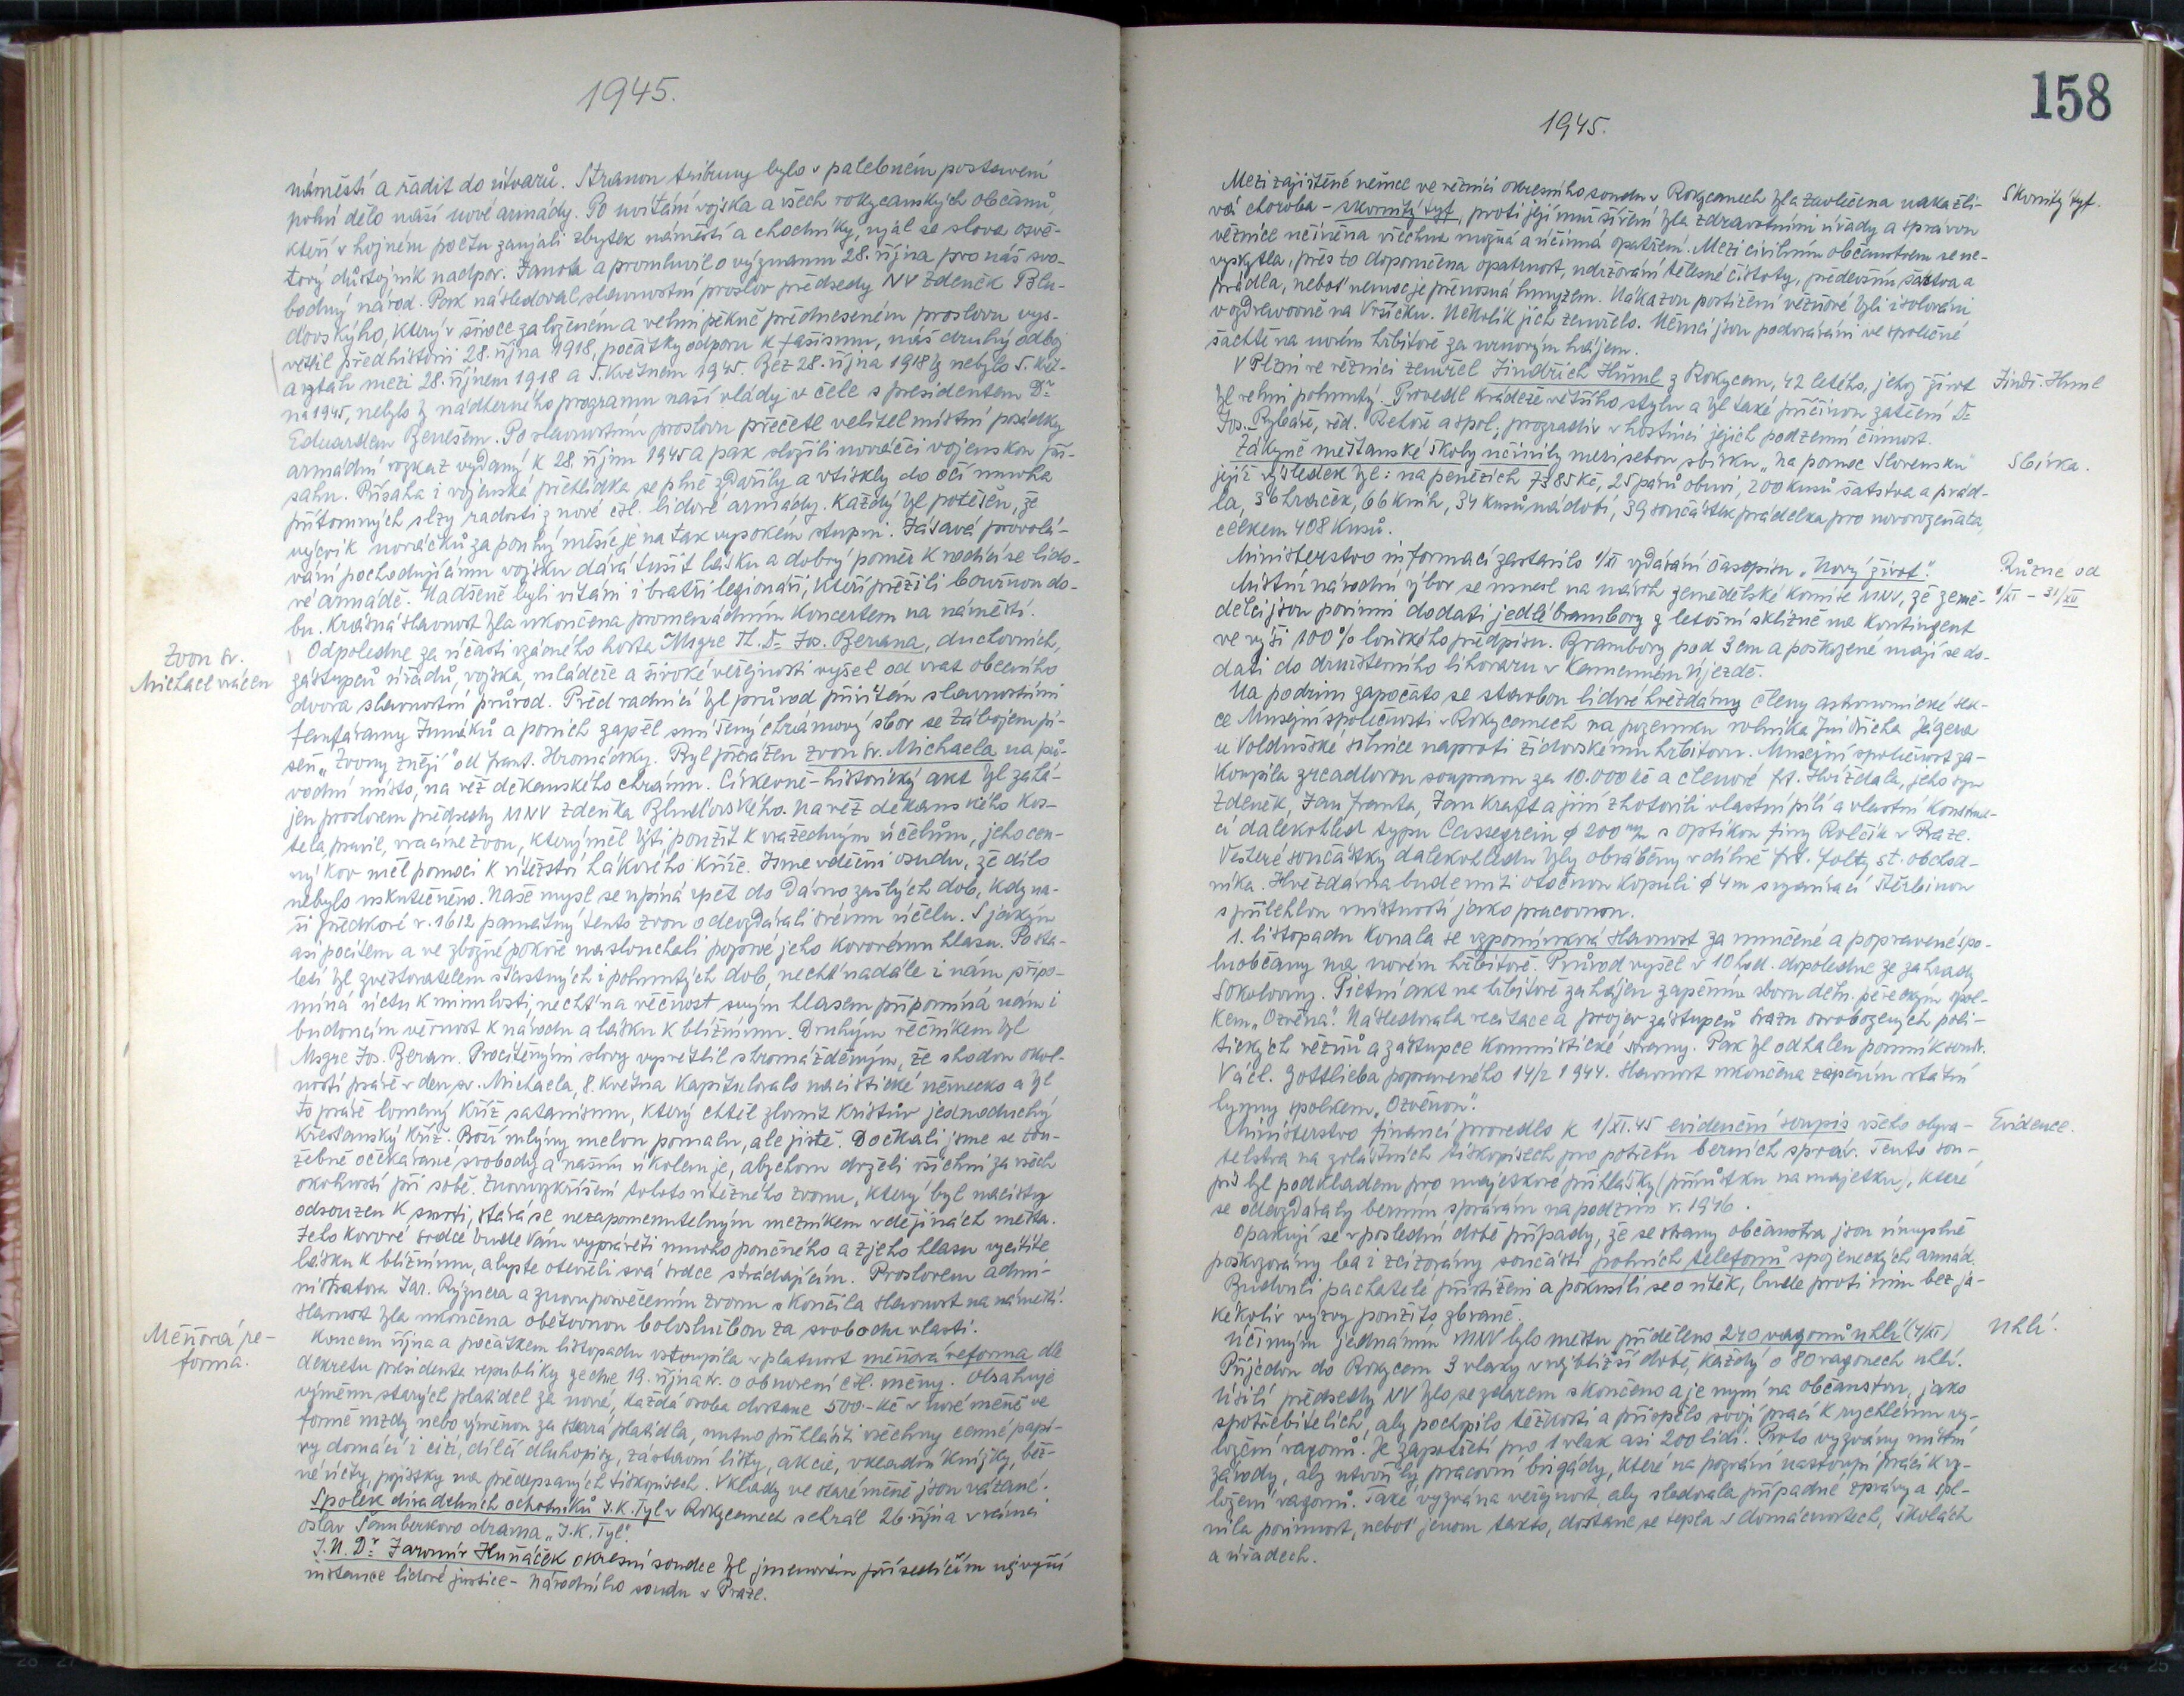 1945.
náměstí a řadit do útvarů. Stranou tribuny bylo v palebném postavení
polní dělo naší nové armády. Po uvítání vojska a všech rokycanských občanů,
kteří v hojném počtu zaujali zbytek náměstí a chodníky, ujal se slova osvě-
tový důstojník nadpor. Janota a promluvil o významu 28. října pro náš svo-
bodný národ. Pak následoval slavnostní proslov předsedy NV Zdeněk Blu-
ďovského, který v široce založeném a velmi pěkně předneseném proslovu vys-
větlil předhistorii 28. října 1918, počátky odporu k fašismu, náš druhý odboj
a vztah mezi 28. říjnem 1918 a 5. květnem 1945. Bez 28. října 1918 by nebylo 5. květ-
na 1945, nebylo by nádherného programu naší vlády v čele s presidentem Dr
Eduardem Benešem. Po slavnostním proslovu přečetl velitel místní posádky
armádní rozkaz vydaný k 28. říjnu 1945 a pak složili nováčci vojenskou pří-
sahu. Přísaha i vojenská přehlídka se plně zdařily a vtiskly do očí mnoha
přítomných slzy radosti z nové čsl. lidové armády. Každý byl potěšen, že
výcvik nováčků za pouhý měsíc je na tak vysokém stupni. Jásavé provolá-
vání pochodujícímu vojsku dává tušit lásku a dobrý poměr k rodící se lido-
vé armádě. Nadšeně byli vítáni i bratři legionáři, kteří přežili bouřnou do-
bu. Krásná slavnost byla ukončena promenádním koncertem na náměstí.
Zvon sv.
Michael vrácen
Odpoledne za účasti vzácného hosta Msgre Th. Dr Jos. Berana, duchovních,
zástupců úřadů, vojska, mládeže a široké veřejnosti vyšel od vrat obecního
dvora slavnostní průvod. Před radnicí byl průvod přivítán slavnostními
fanfárami Junáků a po nich zapěl smíšený chrámový sbor se Zábojem pí-
seň „Zvony znějí" od Jana Hromádky. Byl převážen zvon sv. Michaela na pů-
vodní místo, na věž děkanského chrámu. Církevně-historický akt byl zahá-
jen proslovem předsedy MNV Zdeňka Bluďovského. Na věž děkanského kos-
tela, pravil, vracíme zvon, který měl býti použit k vražedným účelům, jeho cen-
ný kov měl pomoci k vítězství hákového kříže. Jsme vděčni osudu, že dílo
nebylo uskutečněno. Naše mysl se upíná zpět do dávno zašlých dob, kdy na-
ši předkové r. 1612 památný tento zvon odevzdávali svému účelu. S jakým
asi pocitem a ve zbožné pokoře naslouchali poprvé jeho kovovému hlasu. Po sta-
letí byl zvěstovatelem šťastných i pohnutých dob, nechť nadále i nám připo-
míná úctu k minulosti, nechť na věčnost svým hlasem připomíná nám i
budoucím věrnost k národu a lásku k bližnímu. Druhým řečníkem byl
Msgre Jos. Beran. Procítěnými slovy vysvětlil shromážděným, že shodou okol-
ností právě v den sv. Michaela, 8. května kapitulovalo nacistické německo a byl
to právě lomený kříž satanismu, který chtěl zlomit kristův jednoduchý
křesťanský kříž. Boží mlýny melou pomalu, ale jistě. Dočkali jsme se tou-
žebně očekávané svobody a naším úkolem je, abychom drželi všichni za všech
okolností při sobě. Znovuvzkříšení tohoto vítězného zvonu, který byl nacisty
odsouzen k smrti, stává se nezapomenutelným mezníkem v dějinách města.
Jeho kovové srdce bude Vám vyprávěti mnoho poučného a z jeho hlasu vycítíte
lásku k bližnímu, abyste otevřeli svá srdce strádajícím. Proslovem admi-
nistrátora Jar. Rýznera a znovuposvěcením zvonu skončila slavnost na náměstí.
Slavnost byla ukončena obětovnou bohoslužbou za svobodu vlasti.
Měnová re-
forma.
Koncem října a počátkem listopadu vstoupila v platnost měnová reforma dle
dekretu presidenta republiky ze dne 19. října tr. o obnovení čsl. měny. Obsahuje
výměnu starých platidel za nové, každá osoba dostane 500.-Kč v nové měně ve
formě mzdy nebo výměnou za stará platidla, nutno přihlásiti všechny cenné papí-
ry domácí i cizí, dílčí dluhopisy, zástavní listy, akcie, vkladní knížky, běž-
né účty, pojistky na předepsaných tiskopisech. Vklady ve staré měně jsou vázané.
Spolek divadelních ochotníků J.K. Tyl v Rokycanech sehrál 26. října v rámci
oslav Šamberkovo drama „J.K. Tyl".
J.U.Dr Jaromír Huňáček okresní soudce byl jmenován přísedícím nejvyšší
instance lidové justice - Národního soudu v Praze.
158
1945.
Mezi zajištěné němce ve věznici okresního soudu v Rokycanech byla zavlečena nakažli-
vá choroba - skvrnitý tyf, proti jejímu šíření byla zdravotními úřady a správou
věznice učiněna všechna možná a účinná opatření. Mezi civilním občanstvem se ne-
vyskytla, přes to doporučena opatrnost, udržování tělesné čistoty, především šatstva a
prádla, neboť nemoc je přenosná hmyzem. Nákazou postižení vězňové byli izolováni
v ozdravovně na Vršíčku. Několik jich zemřelo. Němci jsou pochováváni ve společné
šachtě na novém hřbitově za urnovým hájem.
Skvrnitý tyf.
V Plzni ve věznici zemřel Jindřich Huml z Rokycan, 42 letého, jehož život
byl velmi pohnutý. Provedl krádeže většího stylu a byl také příčinou zatčení Dr
Jos. Rybáře, řed. Retové a spol., prozradiv v hostinci jejich podzemní činnost.
Jindř. Huml
Žákyně měšťanské školy učinily mezi sebou sbírku „Na pomoc Slovensku"
jejíž výsledek byl: na penězích 7385 Kč, 25 párů obuvi, 200 kusů šatstva a prád-
la, 36 hraček, 66 knih, 34 kusů nádobí, 39 součástek prádelka pro novorozeňata,
celkem 408 kusů.
Sbírka.
Ministerstvo informací zastavilo 1/XI vydávání časopisu „Nový život".
Různé od
1/XI – 31/XII
Místní národní výbor se usnesl na návrh zemědělské komise MNV, že země-
dělci jsou povinni dodati jedlé brambory z letošní sklizně na kontingent
ve výši 100% loňského předpisu. Brambory pod 3 cm a poškozené mají se do-
dati do družstevního lihovaru v Kamenném Újezdě.
Na podzim započato se stavbou lidové hvězdárny členy astronomické sek-
ce Musejní společnosti v Rokycanech na pozemku rolníka Jindřicha Jägera
u Voldušské silnice naproti židovskému hřbitovu. Musejní společnost za-
koupila zrcadlovou soupravu za 10.000 Kč a členové frt. Hvížďala, jeho syn
Zdeněk, Jan Franta, Jan Kraft a jiní zhotovili vlastní pílí a vlastní konstruk-
cí dalekohled typu Cassegrain ø 200 m/m s optikou firmy Rolčík v Praze.
Veškeré součástky dalekohledu byly obráběny v dílně frt. Folty, st. obchod-
níka. Hvězdárna bude míti otočnou kopuli ø 4 m s uzavírací štěrbinou
s přilehlou místností jako pracovnou.
1. listopadu konala se vzpomínková slavnost za umučené a popravené spo-
luobčany na novém hřbitově. Průvod vyšel v 10 hod. dopoledne ze zahrady
Sokolovny. Pietní akt na hřbitově zahájen zapěním sboru děln. pěveckým spol-
kem „Ozvěna". Následovala recitace a projev zástupců Svazu osvobozených poli-
tických vězňů a zástupce Kommistické strany. Pak byl odhalen pomník soudr.
Václ. Gottlieba popraveného 14/2 1944. Slavnost ukončena zapěním státní
hymny spolkem „Ozvěnou".
Ministerstvo financí provedlo k 1/XI.45 evidenční soupis všeho obyva-
telstva na zvláštních tiskopisech pro potřebu berních správ. Tento sou-
pis byl podkladem pro majetkové přihlášky (přírůstku na majetku), které
se odevzdávaly berním správám na podzim r. 1946.
Evidence.
Opakují se v poslední době případy, že se strany občanstva jsou úmyslně
poškozovány ba i zcizovány součásti polních telefonů spojeneckých armád.
Budou-li pachatelé přistiženi a pokusili se o útěk, bude proti nim bez ja-
kékoliv výzvy použito zbraně.
Účinným jednáním MNV bylo městu přiděleno 240 vagonů uhlí (4/XI)
Uhlí.
Přijedou do Rokycan 3 vlaky v nejbližší době, každý o 80 vagonech uhlí.
Úsilí předsedy NV bylo se zdarem skončeno a je nyní na občanstvu, jako
spotřebitelích, aby pochopilo těžkosti a přispělo svojí prací k rychlému vy-
ložení vagonů. Je zapotřebí pro 1 vlak asi 200 lidí. Proto vyzvány místní
závody, aby utvořily pracovní brigády, které na pozvání nastoupí práci k vy-
ložení vagonů. Také vyzvána veřejnost, aby sledovala případné zprávy a spl-
nila povinnost, neboť jenom takto, dostane se tepla v domácnostech, školách
a úřadech.